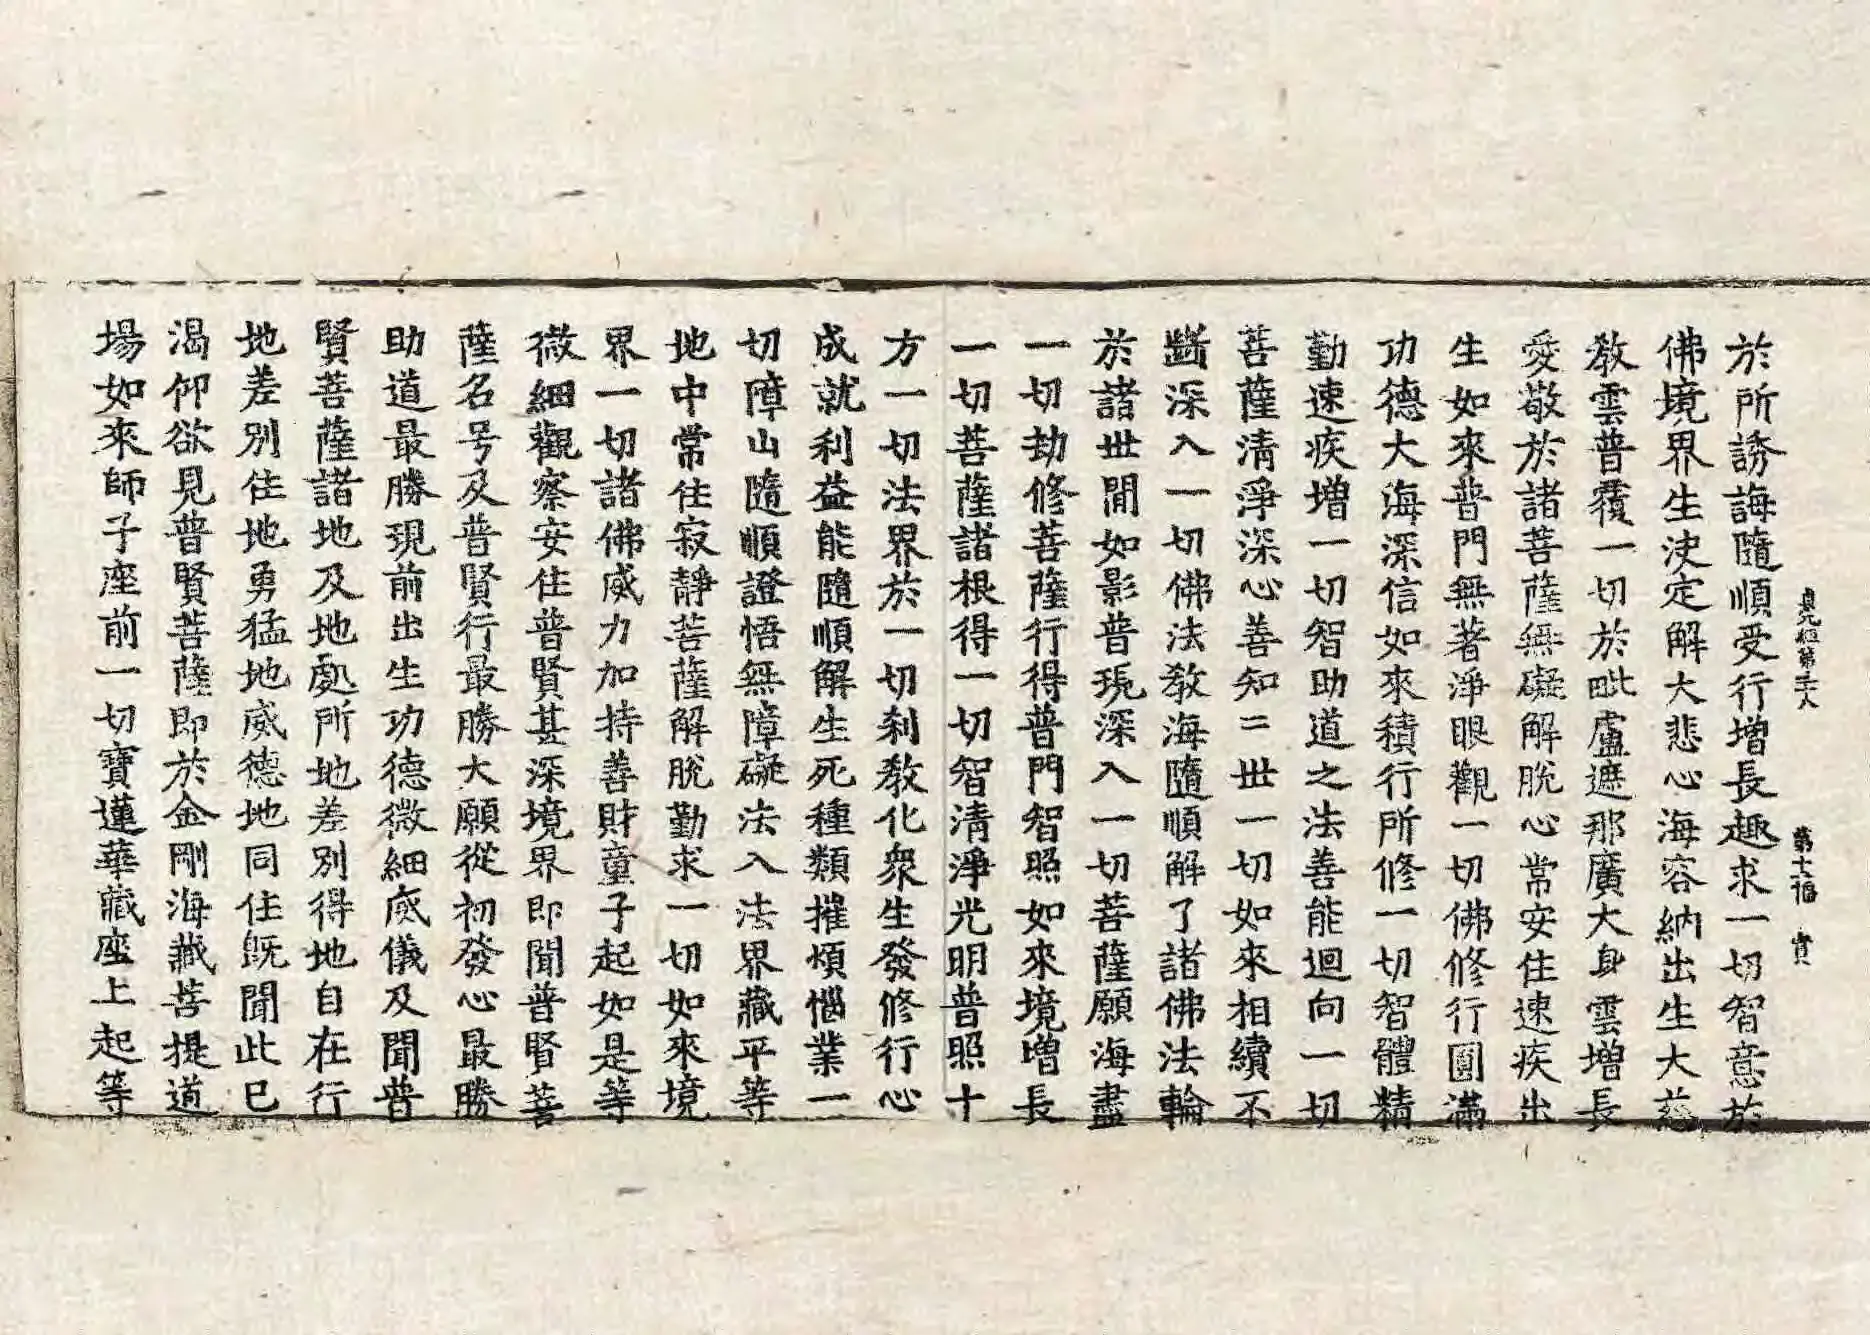 貞元經第三十八 第十七福 寶
於所誘誨隨順受行增長趣求一切智意於
佛境界生決定解大悲心海容納出生大慈
教雲普覆一切於毗盧遮那廣大身雲增長
愛敬於諸菩薩無礙解脫心常安住速疾出
生如來普門無著淨眼觀一切佛修行圓滿
功德大海深信如來積行所修一切智體精
勤速疾增一切智助道之法善能迴向一切
菩薩清淨深心善知三世一切如來相續不
斷深入一切佛法教海隨順解了諸佛法輪
於諸世間如影普現深入一切菩薩願海盡
一切劫修菩薩行得普門智照如來境增長
一切菩薩諸根得一切智清淨光明普照十
方一切法界於一切剎教化眾生發修行心
成就利益能隨順解生死種類摧煩惱業一
切障山隨順證悟無障礙法入法界藏平等
地中常住寂靜菩薩解脫勤求一切如來境
界一切諸佛威力加持善財童子起如是等
微細觀察安住普賢甚深境界即聞普賢菩
薩名号及普賢行最勝大願從初發心最勝
助道最勝現前出生功德微細威儀及聞普
賢菩薩諸地及地處所地差別得地自在行
地差別住地勇猛地威德地同住既聞此已
渴仰欲見普賢菩薩即於金剛海藏菩提道
場如來師子座前一切寶蓮華藏座上起等